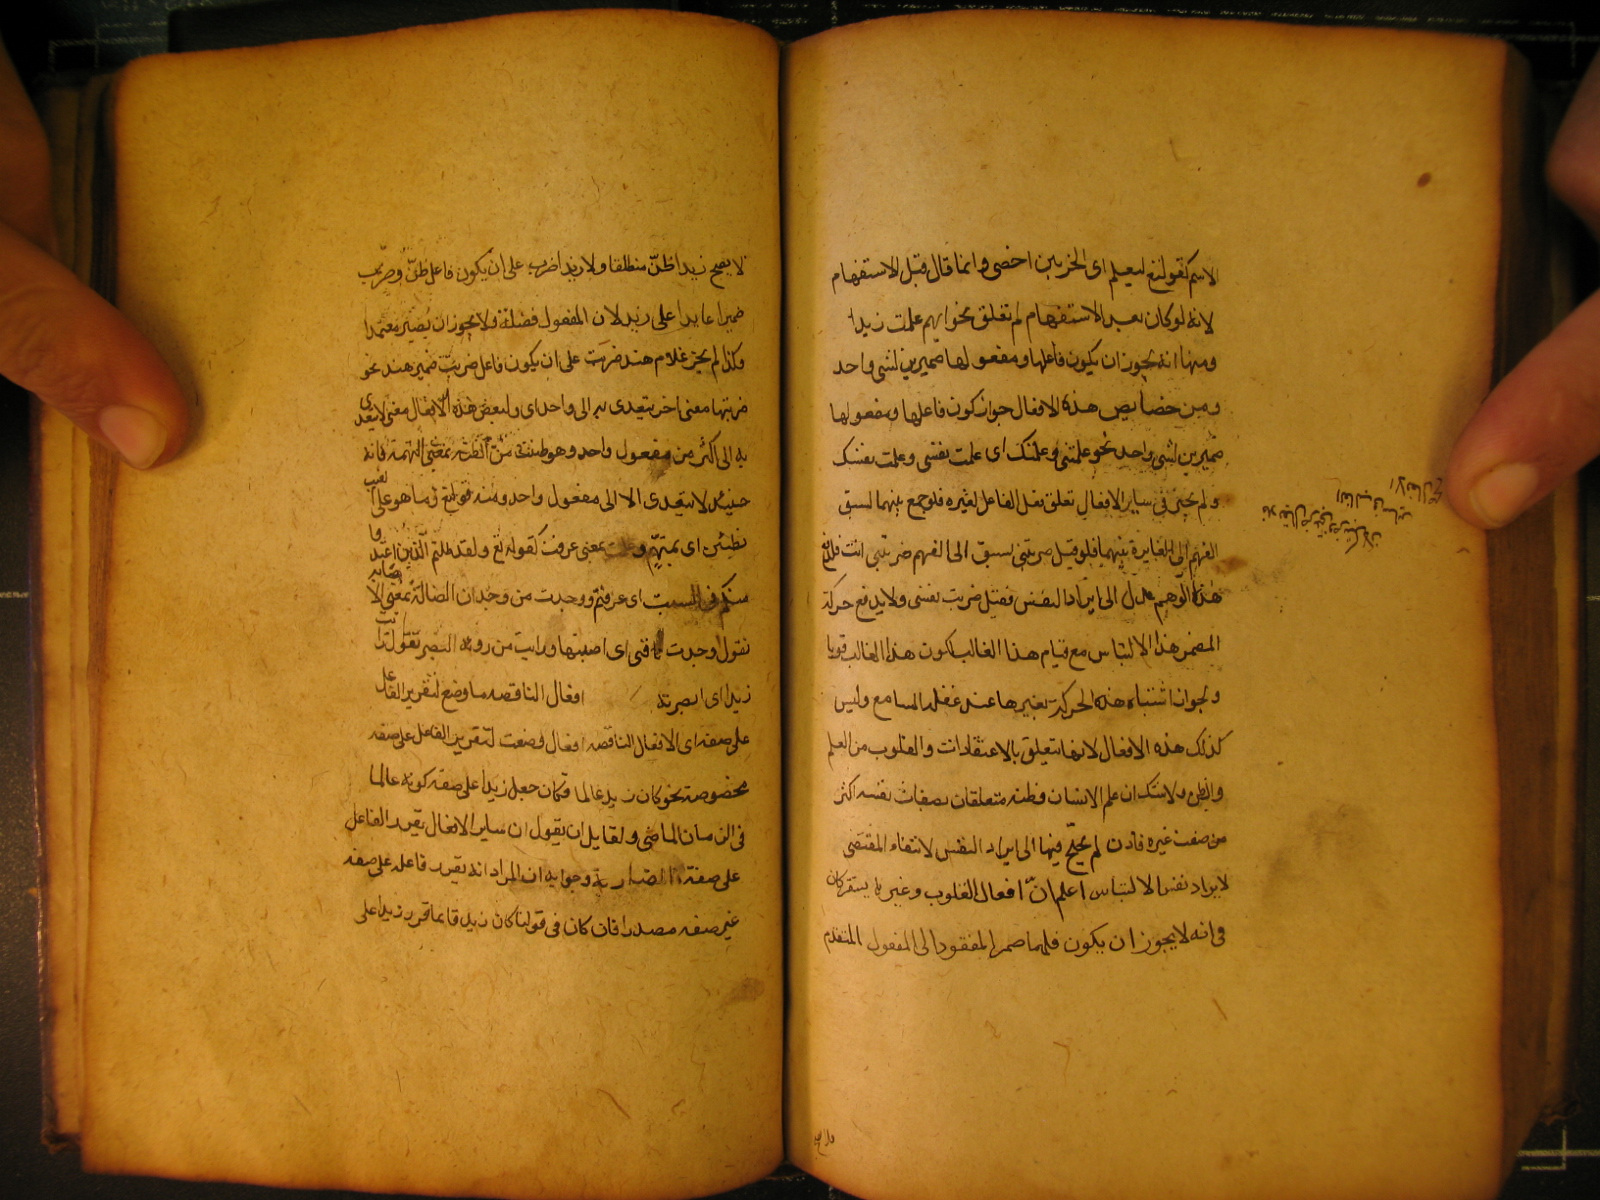 الاسم كقوله تع لنعلم اى الحزبين احصى وانما قال قبل الاستفهام
لانه لو كان بعد الاستفهام لم تعلق نحو ايهم علمت زيدا
ومنها انه يجوز ان يكون فاعلها ومفعولها ضميرين لشى واحد
ومن خصايص هذه الافعال جواز كون فاعلها ومفعولها
ضميرين لشى واحد نحو علمتنى وعلمتك اى علمت نفسى وعلمت نفسك
ولم يجز فى ساير الافعال تعلق فعل الفاعل لغيره فلو جمع بينهما لسبق
الفهم الى المغايرة بينهما فلو قيل ضربتنى لسبق الى الفهم ضربتنى انت
هذا الوهم عدل الى ايراد النفس فقيل ضربت نفسى ولا يدفع حركة
المضمر هذا الالتباس مع قيام هذا الغالب لكون هذا الغالب قويا
ولجواز اشتباه هذه الحركة بغيرها عند غفلة السامع وليس
كذلك هذه الافعال لانها تتعلق بالاعتقادات والقلوب من العلم
والظن ولا شك ان علم الانسان وظنه متعلقان بصفات نفسه اكثر
من صفت غيره فاذن لم يحتج فيها الى ايراد النفس لانتفاء المقتضى
لايراد نفس الالتباس اعلم ان افعال القلوب وغيرها يستقر كان
فى انه لا يجوز ان يكون المفعول المتقدم
لا يصح زيدا ظن منطلقا ولا زيدا ضرب على ان يكون فاعل ظن وضرب
ضميرا عايدا على زيد لان المفعول فضلة ولا يجوز ان يصير معتمدا
وكذا لم يجز غلام هند ضربت على ان يكون فاعل ضربت ضمير هند نحو
ضربتها معنى اخر يتعدى به الى واحد اى ولبعض هذه الافعال معنى لا يتعدى
به الى اكثر من مفعول واحد وهو ظننت من الظنة بمعنى التهمة فانه
حينئذ لا يتعدى الا الى مفعول واحد ومنه قوله تع وما هو على الغيب
بظنين اى بمتهم وعلمت بمعنى عرفت كقوله تع ولقد علمتم الذين اعتدوا
منكم فى السبت اى عرفتم ووجدت من وجدان الضالة بمعنى الاصابه
تقول وجدت اى اصبتها ورايت من روية البصر تقول رايت
زيدا اى ابصرته افعال الناقصه ما وضع لتقرير الفاعل
على صفة اى الافعال الناقصه افعال وضعت لتقرير الفاعل على صفه
مخصوصة نحو كان زيد عالما فكان جعل زيدا على صفه كونه عالما
فى الزمان الماضى ولقايل ان يقول ان ساير الافعال يقرر الفاعل
على صفة وجوابه ان المراد انه يقرر فاعله على صفه
غير صفه مصدره فان كان فى قولنا كان زيد قايما قرر زيدا على